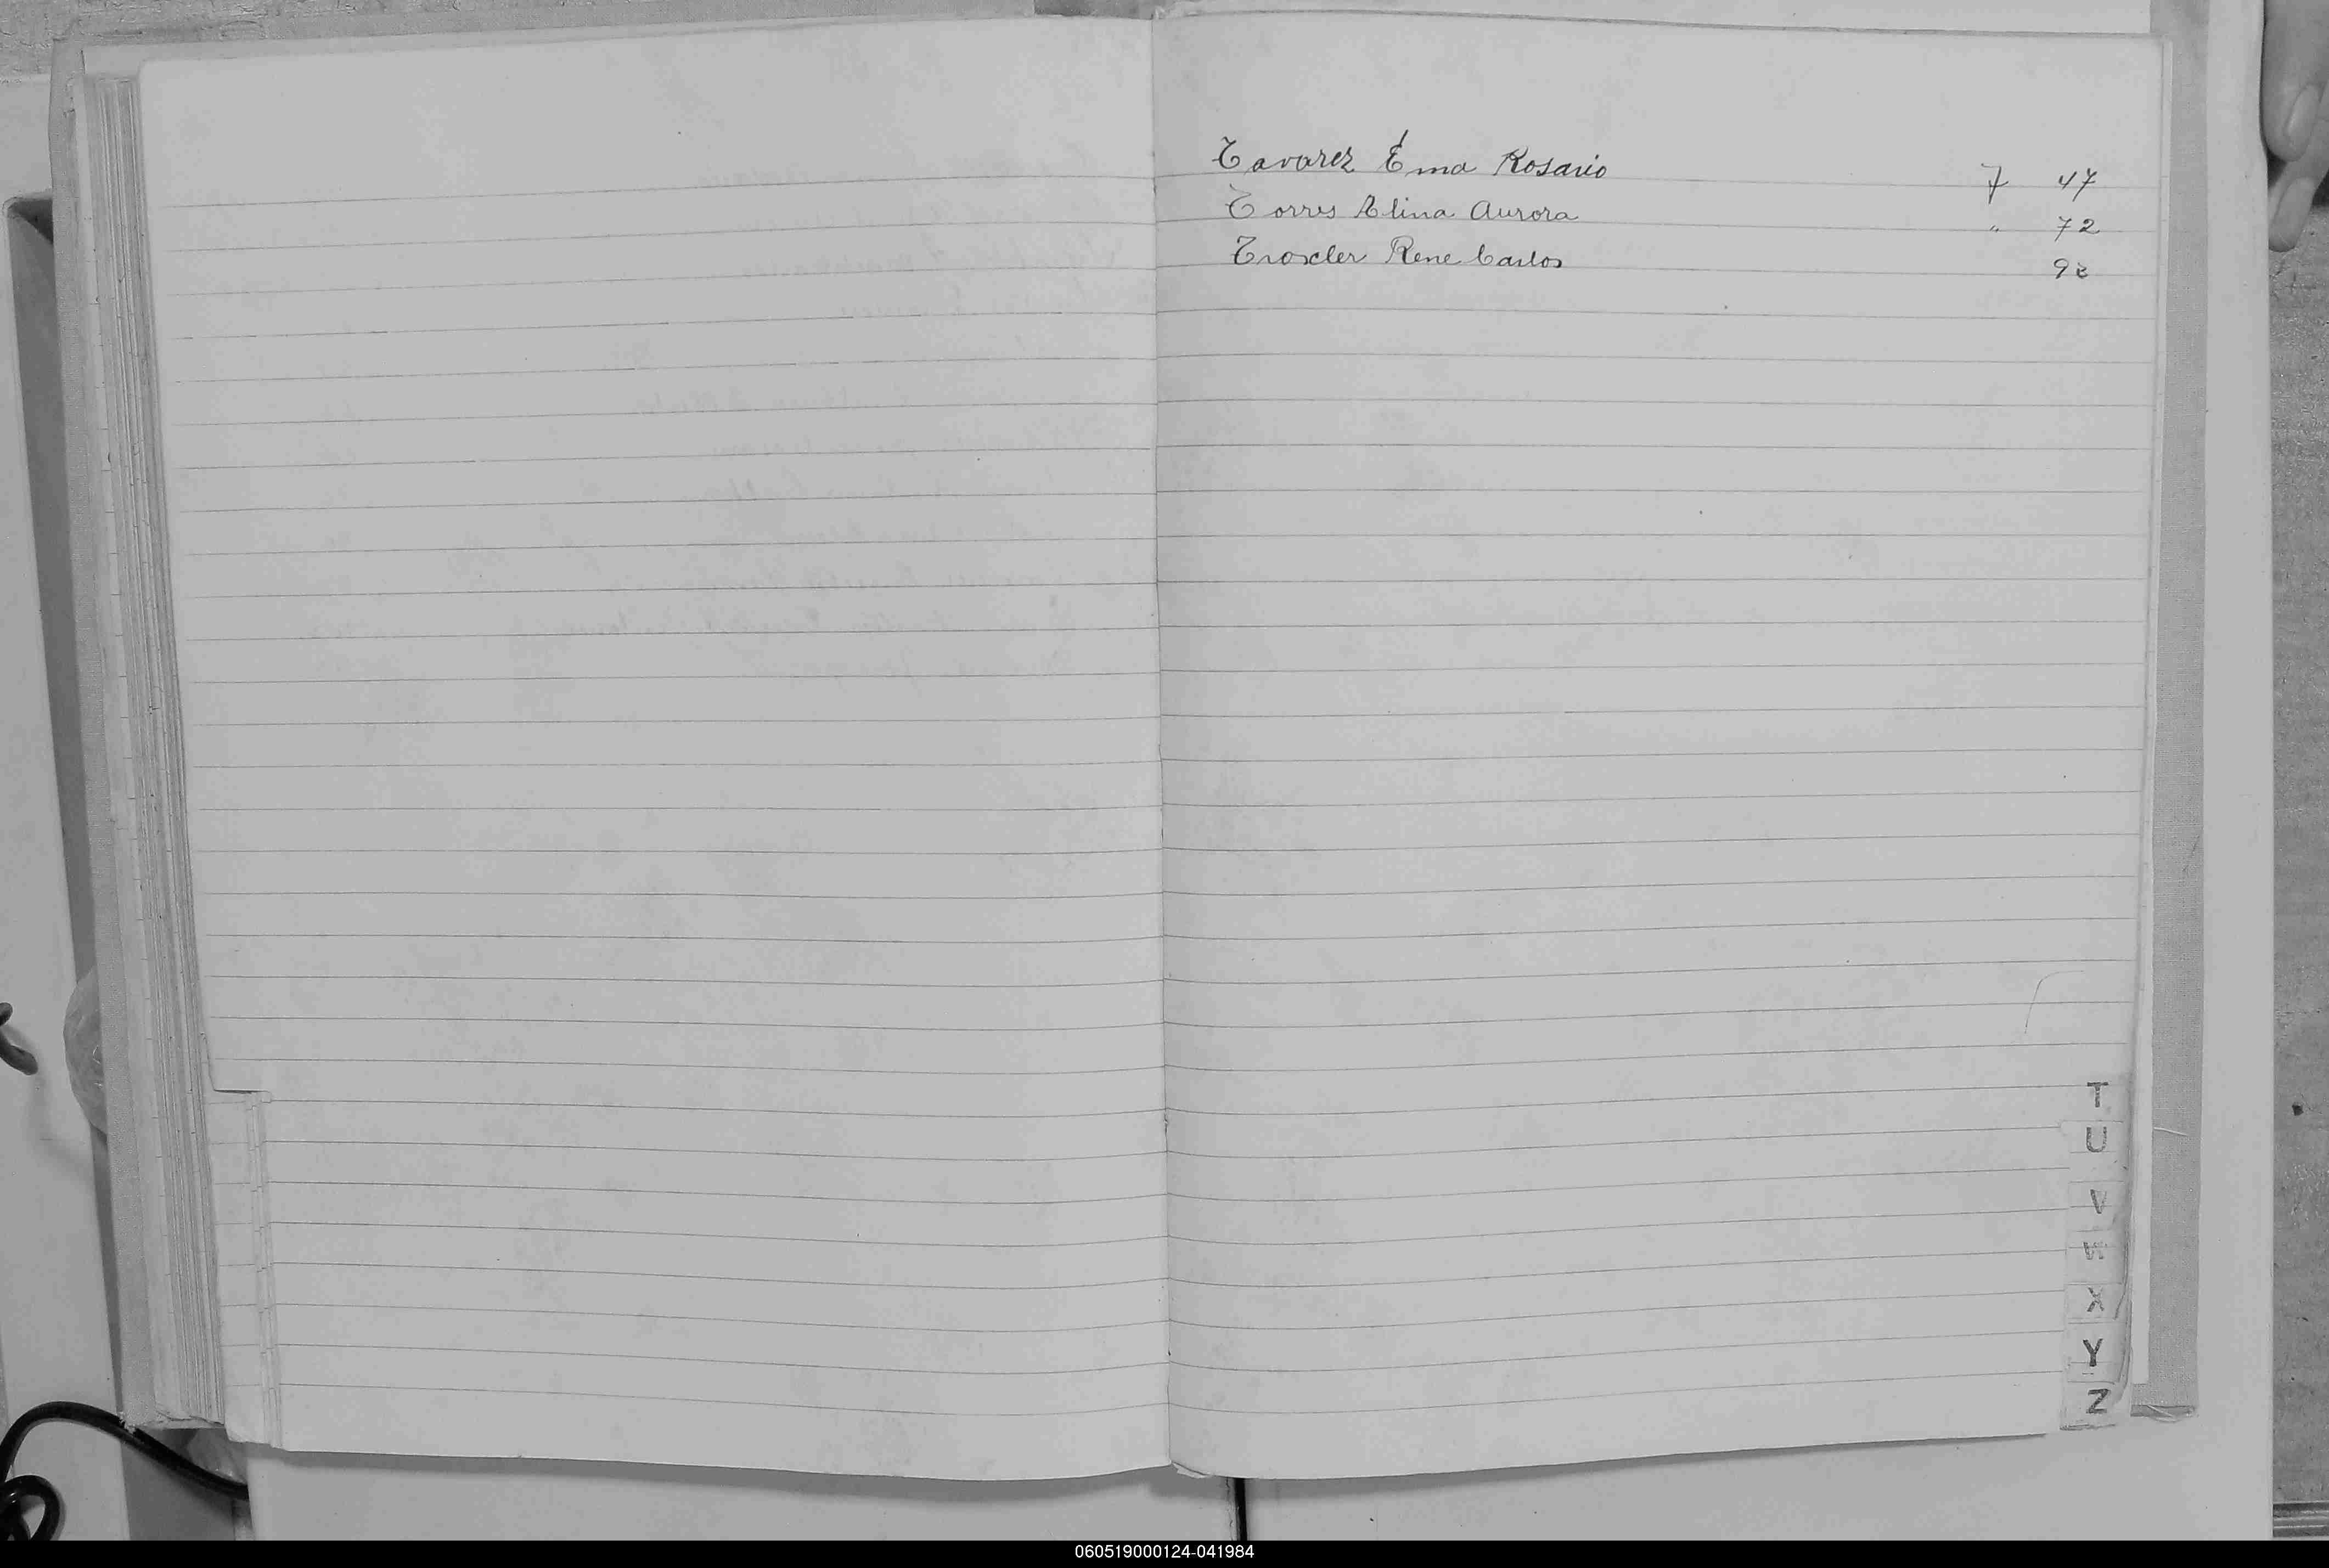 Tavarez Éma Rosario 7 47
Torres Elina Aurora " 72
Troxler Rene Carlos
T
U
V
W
X
Y
Z
060519000124-041984